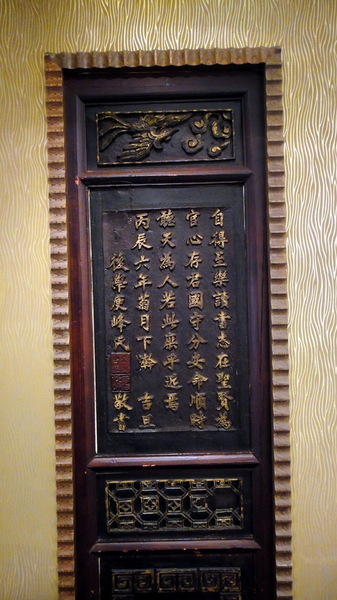 自得至樂讀書志在聖賢為
官心存君國守分安命順時
聽天為人若此庶乎近焉
丙辰六年菊月下澣 吉旦
後學峰氏 敬書